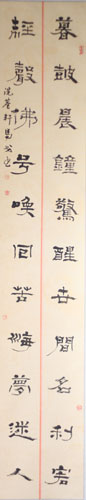 暮皷晨鐘驚醒世間名利客
經聲佛号喚回苦海夢迷人